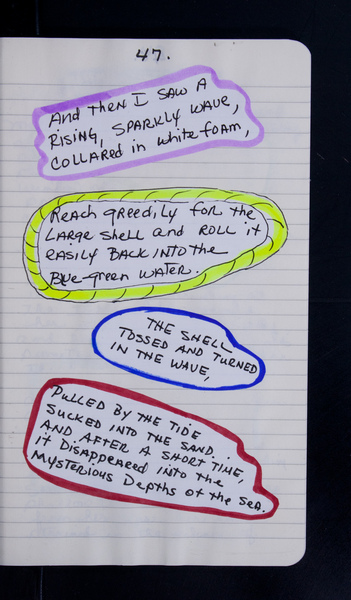 47.
And then I SAW A
RISING, SPARKLY WAVE,
COLLARED in white foam,
Reach greedily for the
LARGE shell and ROLL it
EASILY BACK INTO the
Blue-green WATER.
THE SHELL
TOSSED AND TURNED
IN THE WAVE,
PULLED BY THE TIDE
SUCKED INTO THE SAND.
AND AFTER A SHORT TIME,
it DISAPPEARED INTO the
MYSTERIOUS Depths of the SeA.